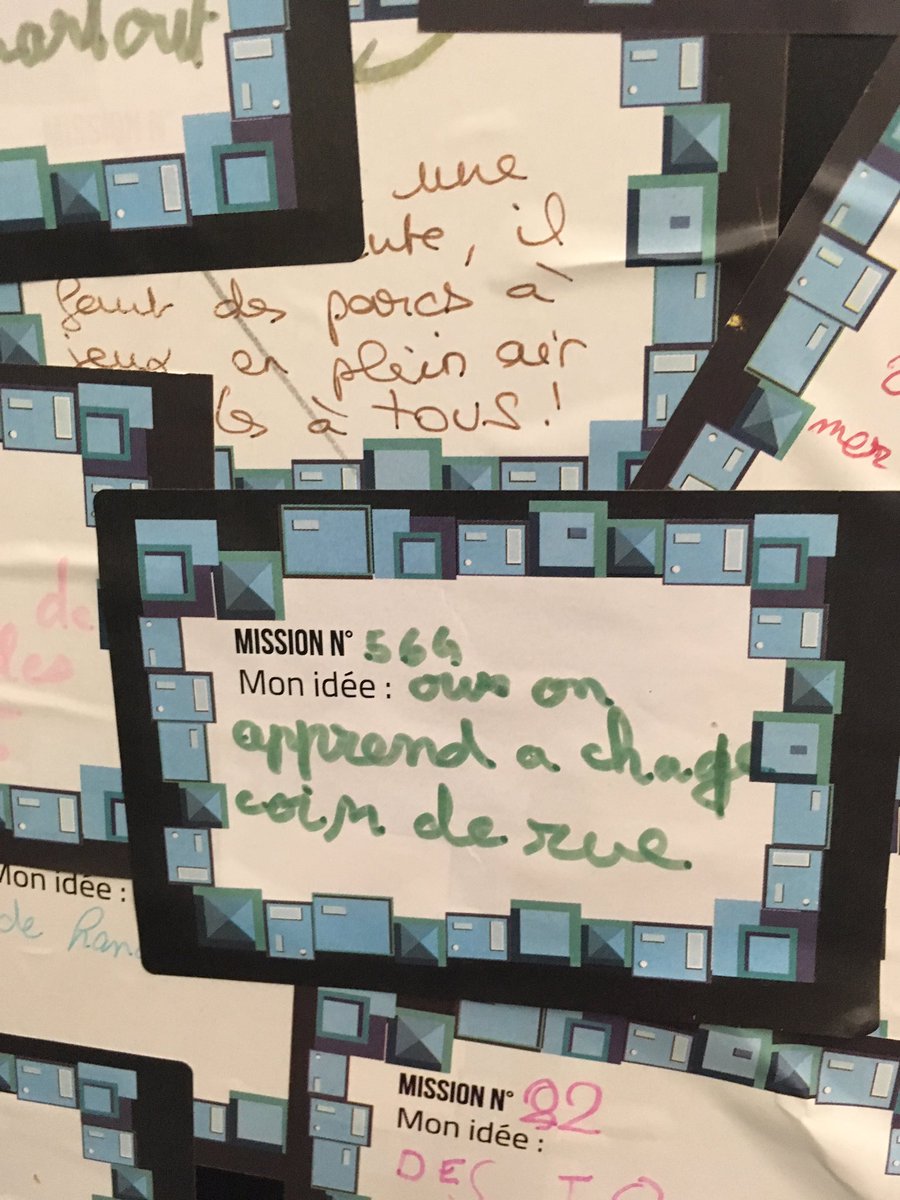 partout
une
ute, il
faut des parcs à
jeux en plein air
ls à TOUS !
mer
de
les
MISSION N° 564
Mon idée : ouv on
apprend a chaqe
coin de rue
Mon idée :
de
MISSION N° 92
Mon idée :
DES